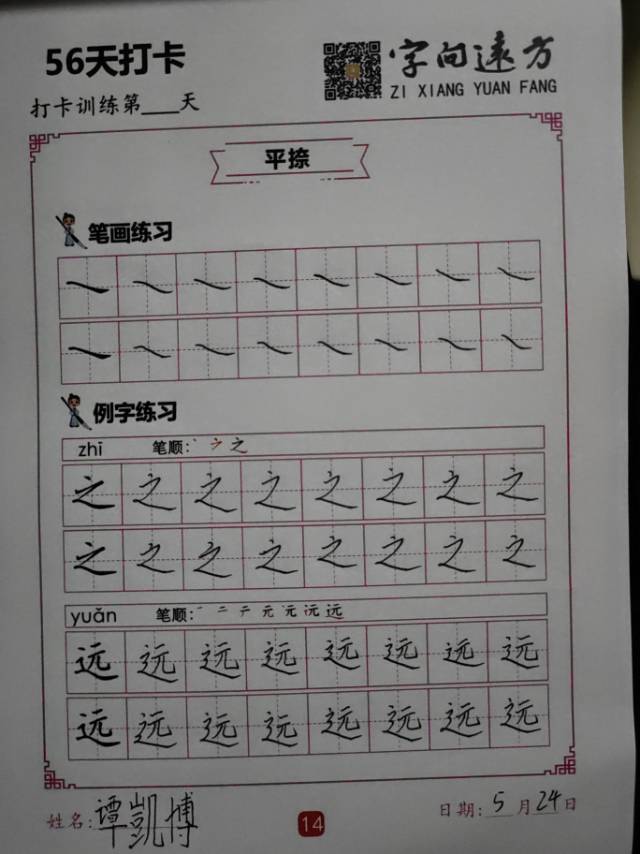 56天打卡
字向远方
ZI XIANG YUAN FANG
打卡训练第___天
平捺
笔画练习
例字练习
zhī 笔顺: 丶 ㇇ 之
之 之 之 之 之 之 之 之
之 之 之 之 之 之 之 之
yuǎn 笔顺: 一 二 テ 元 沅 远
远 远 远 远 远 远 远 远
远 远 远 远 远 远 远 远
姓名: 谭凯博
14
日期: 5 月 24 日